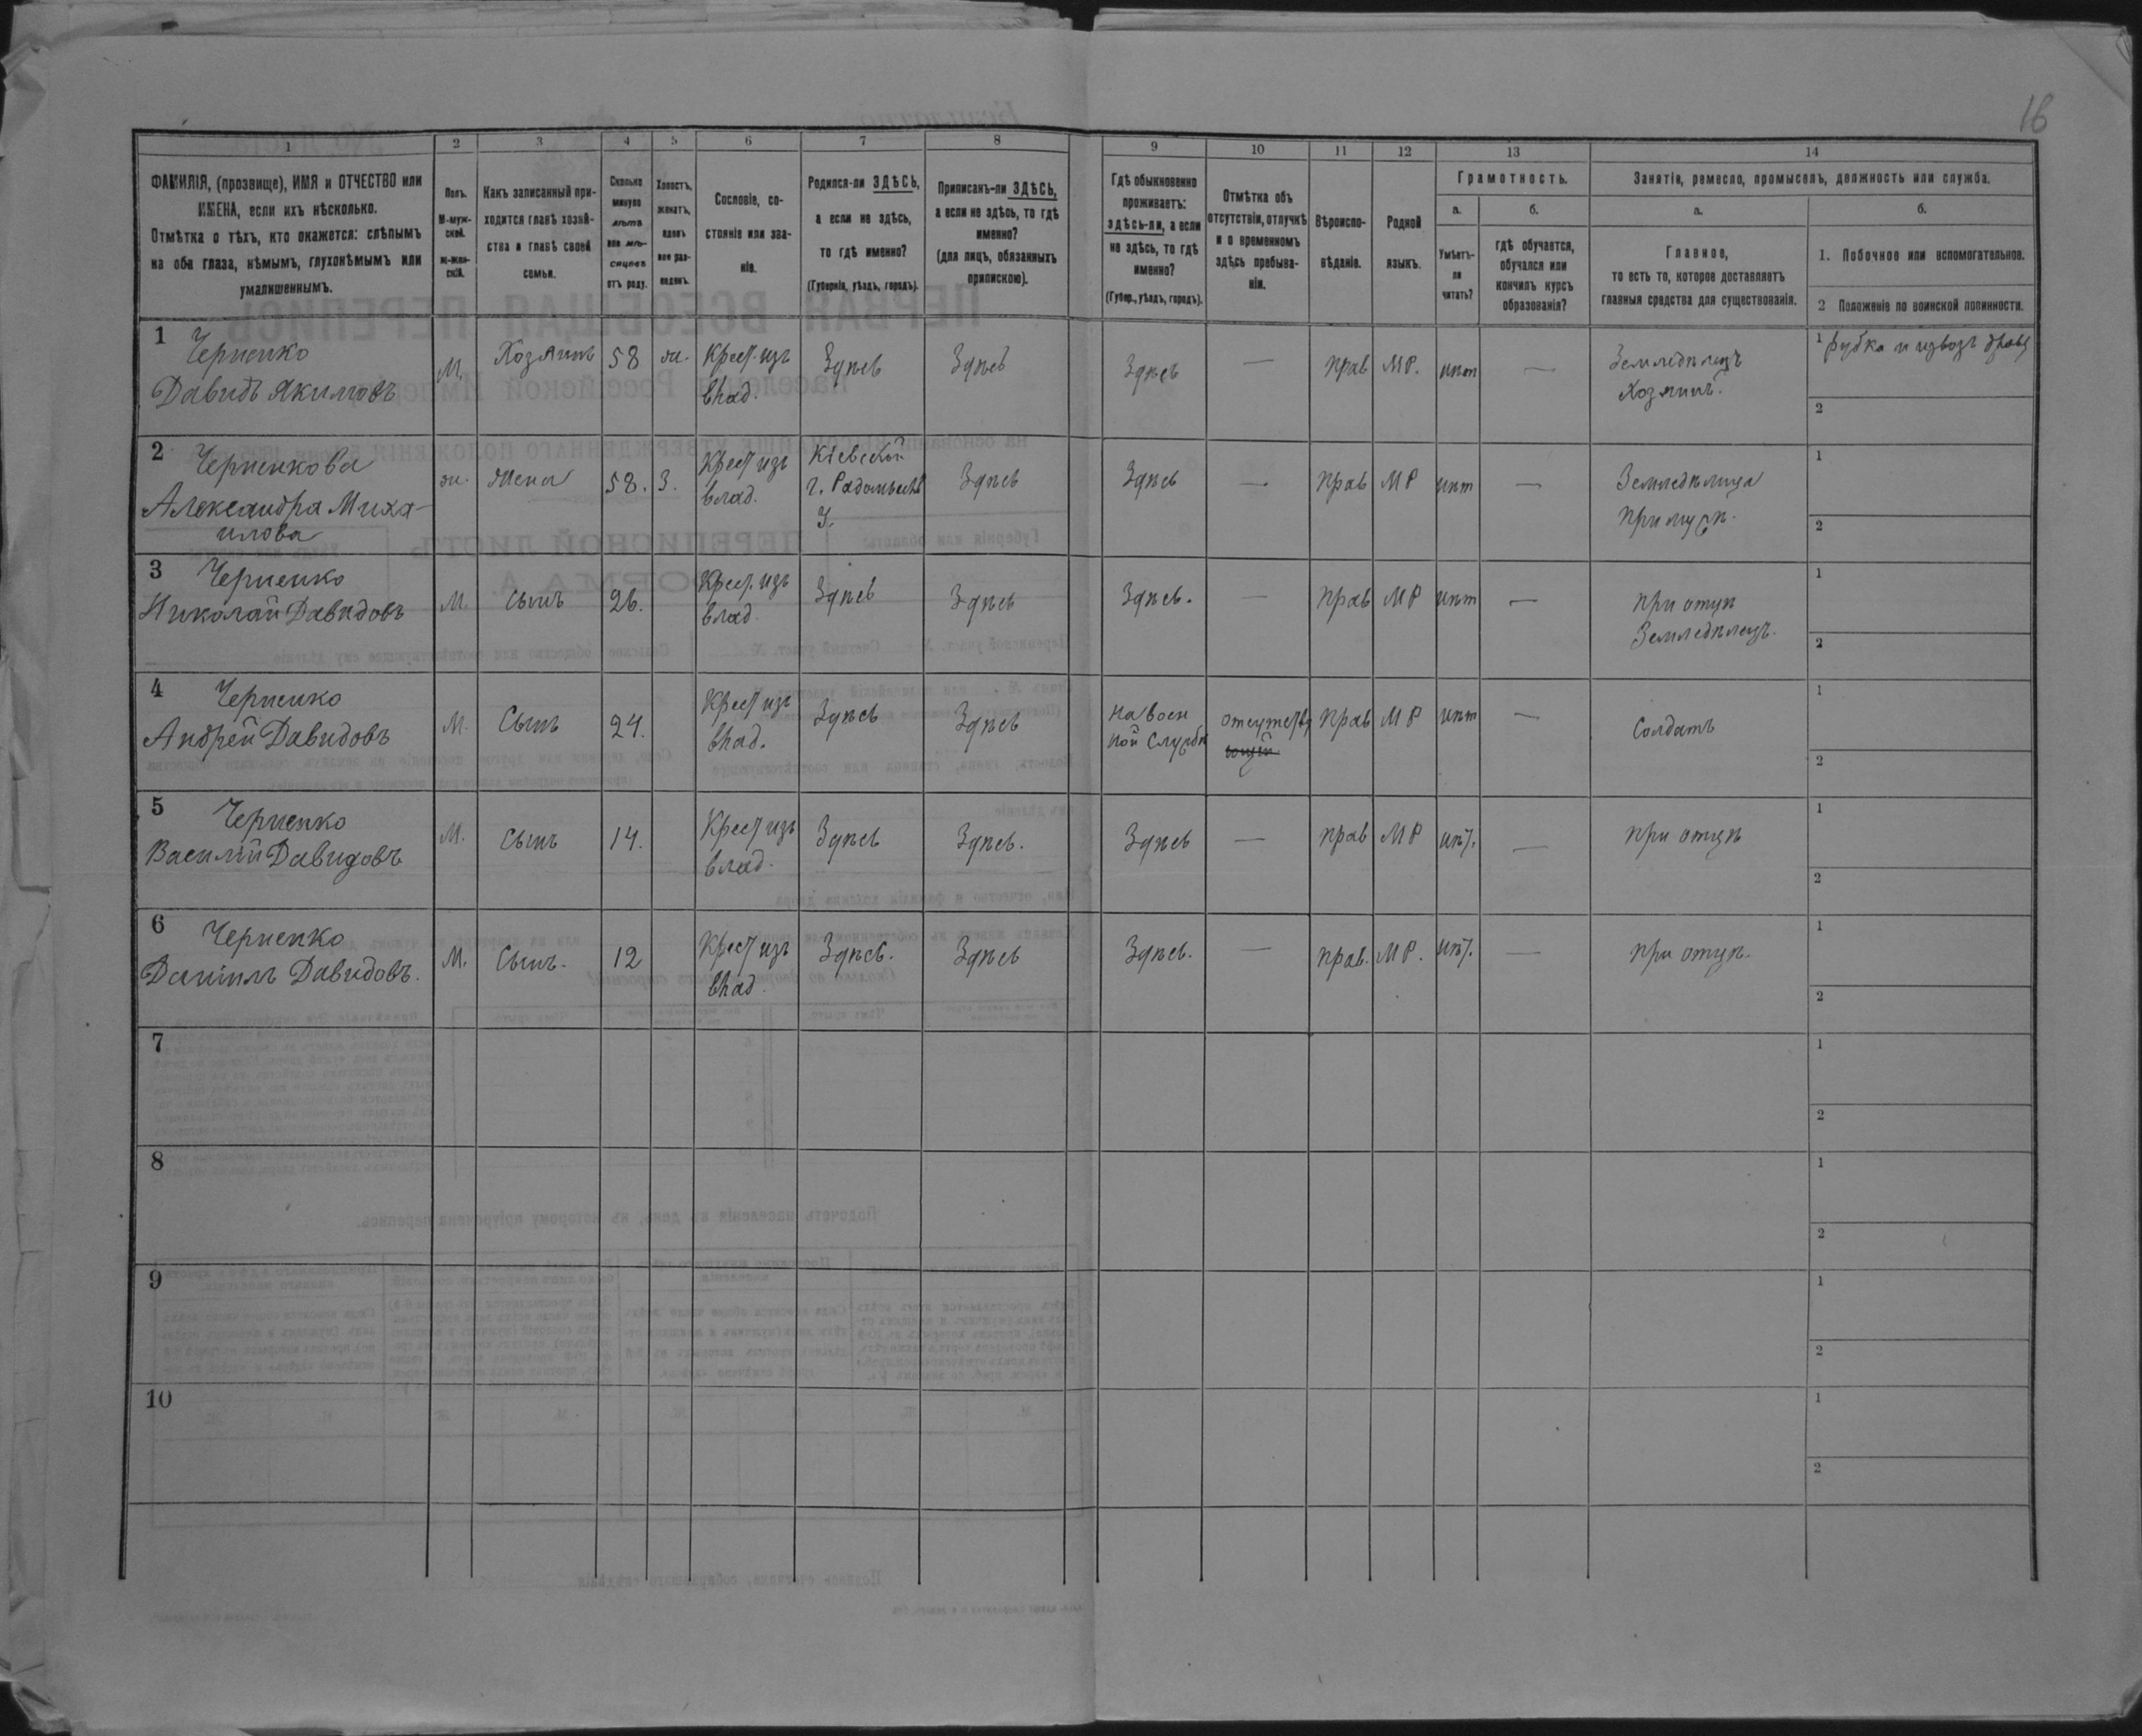 16
1 2 3 4 5 6 7 8 9 10 11 12 13 14
ФАМИЛІЯ, (прозвище), ИМЯ и ОТЧЕСТВО или
ИМЕНА, если ихъ нѣсколько.
Отмѣтка о тѣхъ, кто окажется: слѣпымъ
на оба глаза, нѣмымъ, глухонѣмымъ или
умалишеннымъ.
Полъ.
М-муж-
ской.
ж-жен-
скій.
Какъ записанный при-
ходится главѣ хозяй-
ства и главѣ своей
семьи.
Сколько
минуло
лѣтъ
или мѣ-
сяцевъ
отъ роду.
Холостъ,
женатъ,
вдовъ
или раз-
веденъ.
Сословіе, со-
стояніе или зва-
ніе.
Родился-ли ЗДѢСЬ,
а если не здѣсь,
то гдѣ именно?
(Губернія, уѣздъ, городъ).
Приписанъ-ли ЗДѢСЬ,
а если не здѣсь, то гдѣ
именно?
(для лицъ, обязанныхъ
припискою).
Гдѣ обыкновенно
проживаетъ:
здѣсь-ли, а если
не здѣсь, то гдѣ
именно?
(Губер., уѣздъ, городъ).
Отмѣтка объ
отсутствіи, отлучкѣ
и о временномъ
здѣсь пребыва-
ніи.
Вѣроиспо-
вѣданіе.
Родной
языкъ.
Грамотность.
а.
Умѣетъ-
ли
читать?
б.
гдѣ обучается,
обучался или
кончилъ курсъ
образованія?
Занятіе, ремесло, промыселъ, должность или служба.
а.
Главное,
то есть то, которое доставляетъ
главныя средства для существованія.
б.
1. Побочное или вспомогательное.
2 Положеніе по воинской повинности.
1 Черненко
Давидъ Якимовъ
М.
Хозяинъ
58
ж.
Крест. изъ
влад.
Здѣсь
Здѣсь
Здѣсь
—
прав
МР.
нѣт
—
Земледѣлецъ
Хозяинъ.
1 рубка и извозъ дровъ
2
2 Черненкова
Александра Миха-
илова
ж.
Жена
58.
З.
Крест изъ
влад.
Кіевской
г. Радомысль
у.
Здѣсь
Здѣсь
—
прав
МР
нѣт
—
Земледѣлица
при мужѣ.
1
2
3 Черненко
Николай Давидовъ
М.
сынъ
26.
Крест. изъ
влад.
Здѣсь
Здѣсь
Здѣсь.
—
прав
МР
нѣт
—
при отцѣ
Земледѣлецъ.
1
2
4 Черненко
Андрей Давидовъ
М.
Сынъ
24.
Крест изъ
влад.
Здѣсь
Здѣсь
На воен
ной службѣ
отсутству
ющій
прав
МР
нѣт
—
Солдатъ
1
2
5 Черненко
Василій Давидовъ
М.
сынъ
14.
Крест изъ
влад.
Здѣсь
Здѣсь.
Здѣсь
—
прав
МР
нѣт.
—
при отцѣ
1
2
6 Черненко
Даніилъ Давидовъ.
М.
Сынъ.
12
Крест изъ
влад.
Здѣсь.
Здѣсь
Здѣсь.
—
прав.
МР.
нѣт.
—
при отцѣ.
1
2
7
1
2
8
1
2
9
1
2
10
1
2